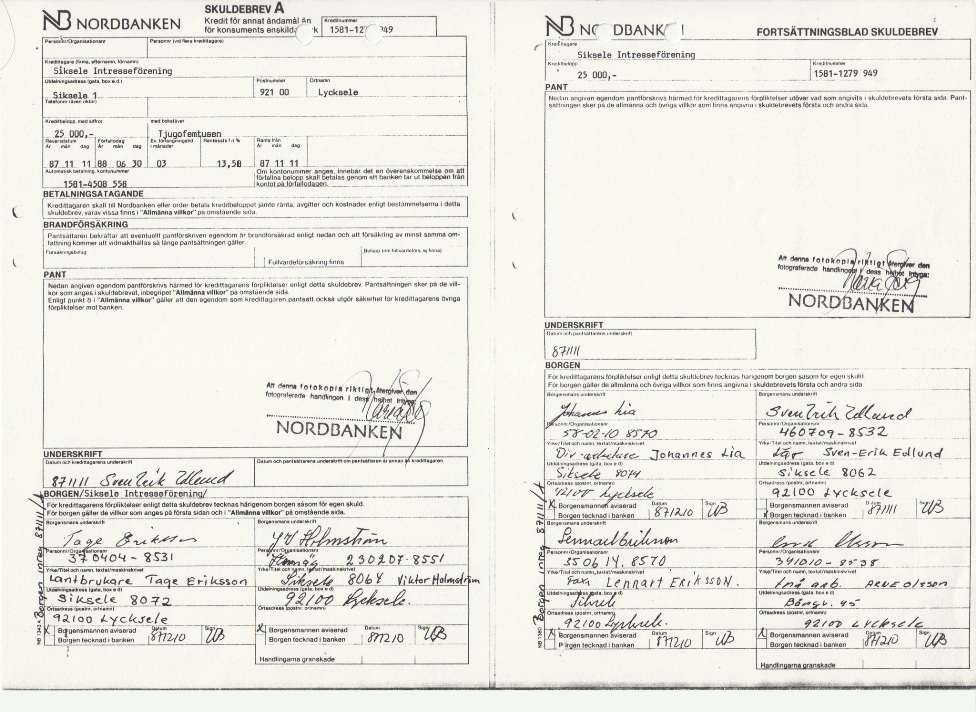 NORDBANKEN
SKULDEBREV A
Kredit för annat ändamål än
för konsuments enskilda
Kreditnummer
1581-1279 949
Personnr/Organisationsnr
Personnr (vid flera kredittagare)
Kredittagare (firma, efternamn, förnamn)
Siksele Intresseförening
Utdelningsadress (gata, box e.d.)
Postnummer
Ortnamn
Siksele 1
921 00
Lycksele
Telefonnr (även riktnr)
Kreditbelopp, med siffror
med bokstäver
25 000,-
Tjugofemtusen
Reversdatum
År mån dag
Förfallodag
År mån dag
i månader
Räntesats f n %
Ränta från
År mån dag
87 11 11
88 06 30
03
13,50
87 11 11
Automatisk betalning, kontonummer
1581-4508 558
Om kontonummer anges, innebär det en överenskommelse om att
förfallna belopp skall betalas genom att banken tar ut beloppen från
kontot på förfallodagen.
BETALNINGSÅTAGANDE
Kredittagaren skall till Nordbanken eller order betala kreditbeloppet jämte ränta, avgifter och kostnader enligt bestämmelserna i detta
skuldebrev, varav vissa finns i "Allmänna villkor" på omstående sida.
BRANDFÖRSÄKRING
Pantsättaren bekräftar att eventuellt pantförskriven egendom är brandförsäkrad enligt nedan och att försäkring av minst samma om-
fattning kommer att vidmakthållas så länge pantsättningen gäller.
Försäkringsbolag
Fullvärdeförsäkring finns
Belopp (om fullvärdeförs. ej finns)
PANT
Nedan angiven egendom pantförskrivs härmed för kredittagarens förpliktelser enligt detta skuldebrev. Pantsättningen sker på de vill-
kor som anges i skuldebrevet, inbegripet "Allmänna villkor" på omstående sida.
Enligt punkt 8 i "Allmänna villkor" gäller att den egendom som kredittagaren pantsatt också utgör säkerhet för kredittagarens övriga
förpliktelser mot banken.
Att denna fotokopia riktigt återgiver den
fotograferade handlingen i dess helhet intyga:
NORDBANKEN
UNDERSKRIFT
Datum och kredittagarens underskrift
Datum och pantsättarens underskrift om pantsättaren är annan än kredittagaren
871111 Sven Erik Edlund
BORGEN/Siksele Intresseförening/
För kredittagarens förpliktelser enligt detta skuldebrev tecknas härigenom borgen såsom för egen skuld.
För borgen gäller de villkor som anges på första sidan och i "Allmänna villkor" på omstående sida.
Borgensmans underskrift
Borgensmans underskrift
Tage Eriksson
Holmström
Personnr/Organisationsnr
Personnr/Organisationsnr
370404-8531
230207-8551
Yrke/Titel och namn, textat/maskinskrivet
Yrke/Titel och namn, textat/maskinskrivet
Lantbrukare Tage Eriksson
Siksele 8064 Viktor Holmström
Utdelningsadress (gata, box e d)
Utdelningsadress (gata, box e d)
Siksele 8072
92100 Lycksele.
Ortsadress (postnr, ortnamn)
Ortsadress (postnr, ortnamn)
92100 Lycksele
X Borgensmannen aviserad
Borgen tecknad i banken
Datum
871210
Sign
X Borgensmannen aviserad
Borgen tecknad i banken
Datum
871210
Sign
Handlingarna granskade
NORDBANK
FORTSÄTTNINGSBLAD SKULDEBREV
Kredittagare
Siksele Intresseförening
Kreditbelopp
25 000,-
Kreditnummer
1581-1279 949
PANT
Nedan angiven egendom pantförskrivs härmed för kredittagarens förpliktelser utöver vad som angivits i skuldebrevets första sida. Pant-
sättningen sker på de allmänna och övriga villkor som finns angivna i skuldebrevets första och andra sida.
Att denna fotokopia riktigt återgiver den
fotograferade handlingen i dess helhet intyga:
NORDBANKEN
UNDERSKRIFT
Datum och pantsättarens underskrift
871111
BORGEN
För kredittagarens förpliktelser enligt detta skuldebrev tecknas härigenom borgen såsom för egen skuld.
För borgen gäller de allmänna och övriga villkor som finns angivna i skuldebrevets första och andra sida.
Borgensmans underskrift
Borgensmans underskrift
Johannes Lia
Sven Erik Edlund
Personnr/Organisationsnr
Personnr/Organisationsnr
58-02-10 8570
460709-8532
Yrke/Titel och namn, textat/maskinskrivet
Yrke/Titel och namn, textat/maskinskrivet
Johannes Lia
Sven-Erik Edlund
Utdelningsadress (gata, box e d)
Utdelningsadress (gata, box e d)
Siksele
Siksele 8062
Ortsadress (postnr, ortnamn)
Ortsadress (postnr, ortnamn)
92100 Lycksele
92100 Lycksele
X Borgensmannen aviserad
Borgen tecknad i banken
Datum
871210
Sign
Borgensmannen aviserad
X Borgen tecknad i banken
Datum
871111
Sign
Borgensmans underskrift
Borgensmans underskrift
Lennart Eriksson
Personnr/Organisationsnr
Personnr/Organisationsnr
350614-8570
341010-8538
Yrke/Titel och namn, textat/maskinskrivet
Yrke/Titel och namn, textat/maskinskrivet
Lennart Eriksson.
Arne Olsson
Utdelningsadress (gata, box e d)
Utdelningsadress (gata, box e d)
Siksele
Ortsadress (postnr, ortnamn)
Ortsadress (postnr, ortnamn)
92100 Lycksele.
92100 Lycksele
X Borgensmannen aviserad
Borgen tecknad i banken
Datum
871210
Sign
X Borgensmannen aviserad
Borgen tecknad i banken
Datum
871210
Sign
Handlingarna granskade